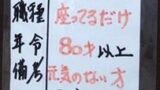 職種 座ってるだけ
年令 80才以上
備考 元気のない方